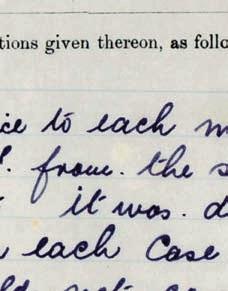 tions given thereon, as follo
ice to each m
from. the s
it was. d
each Case